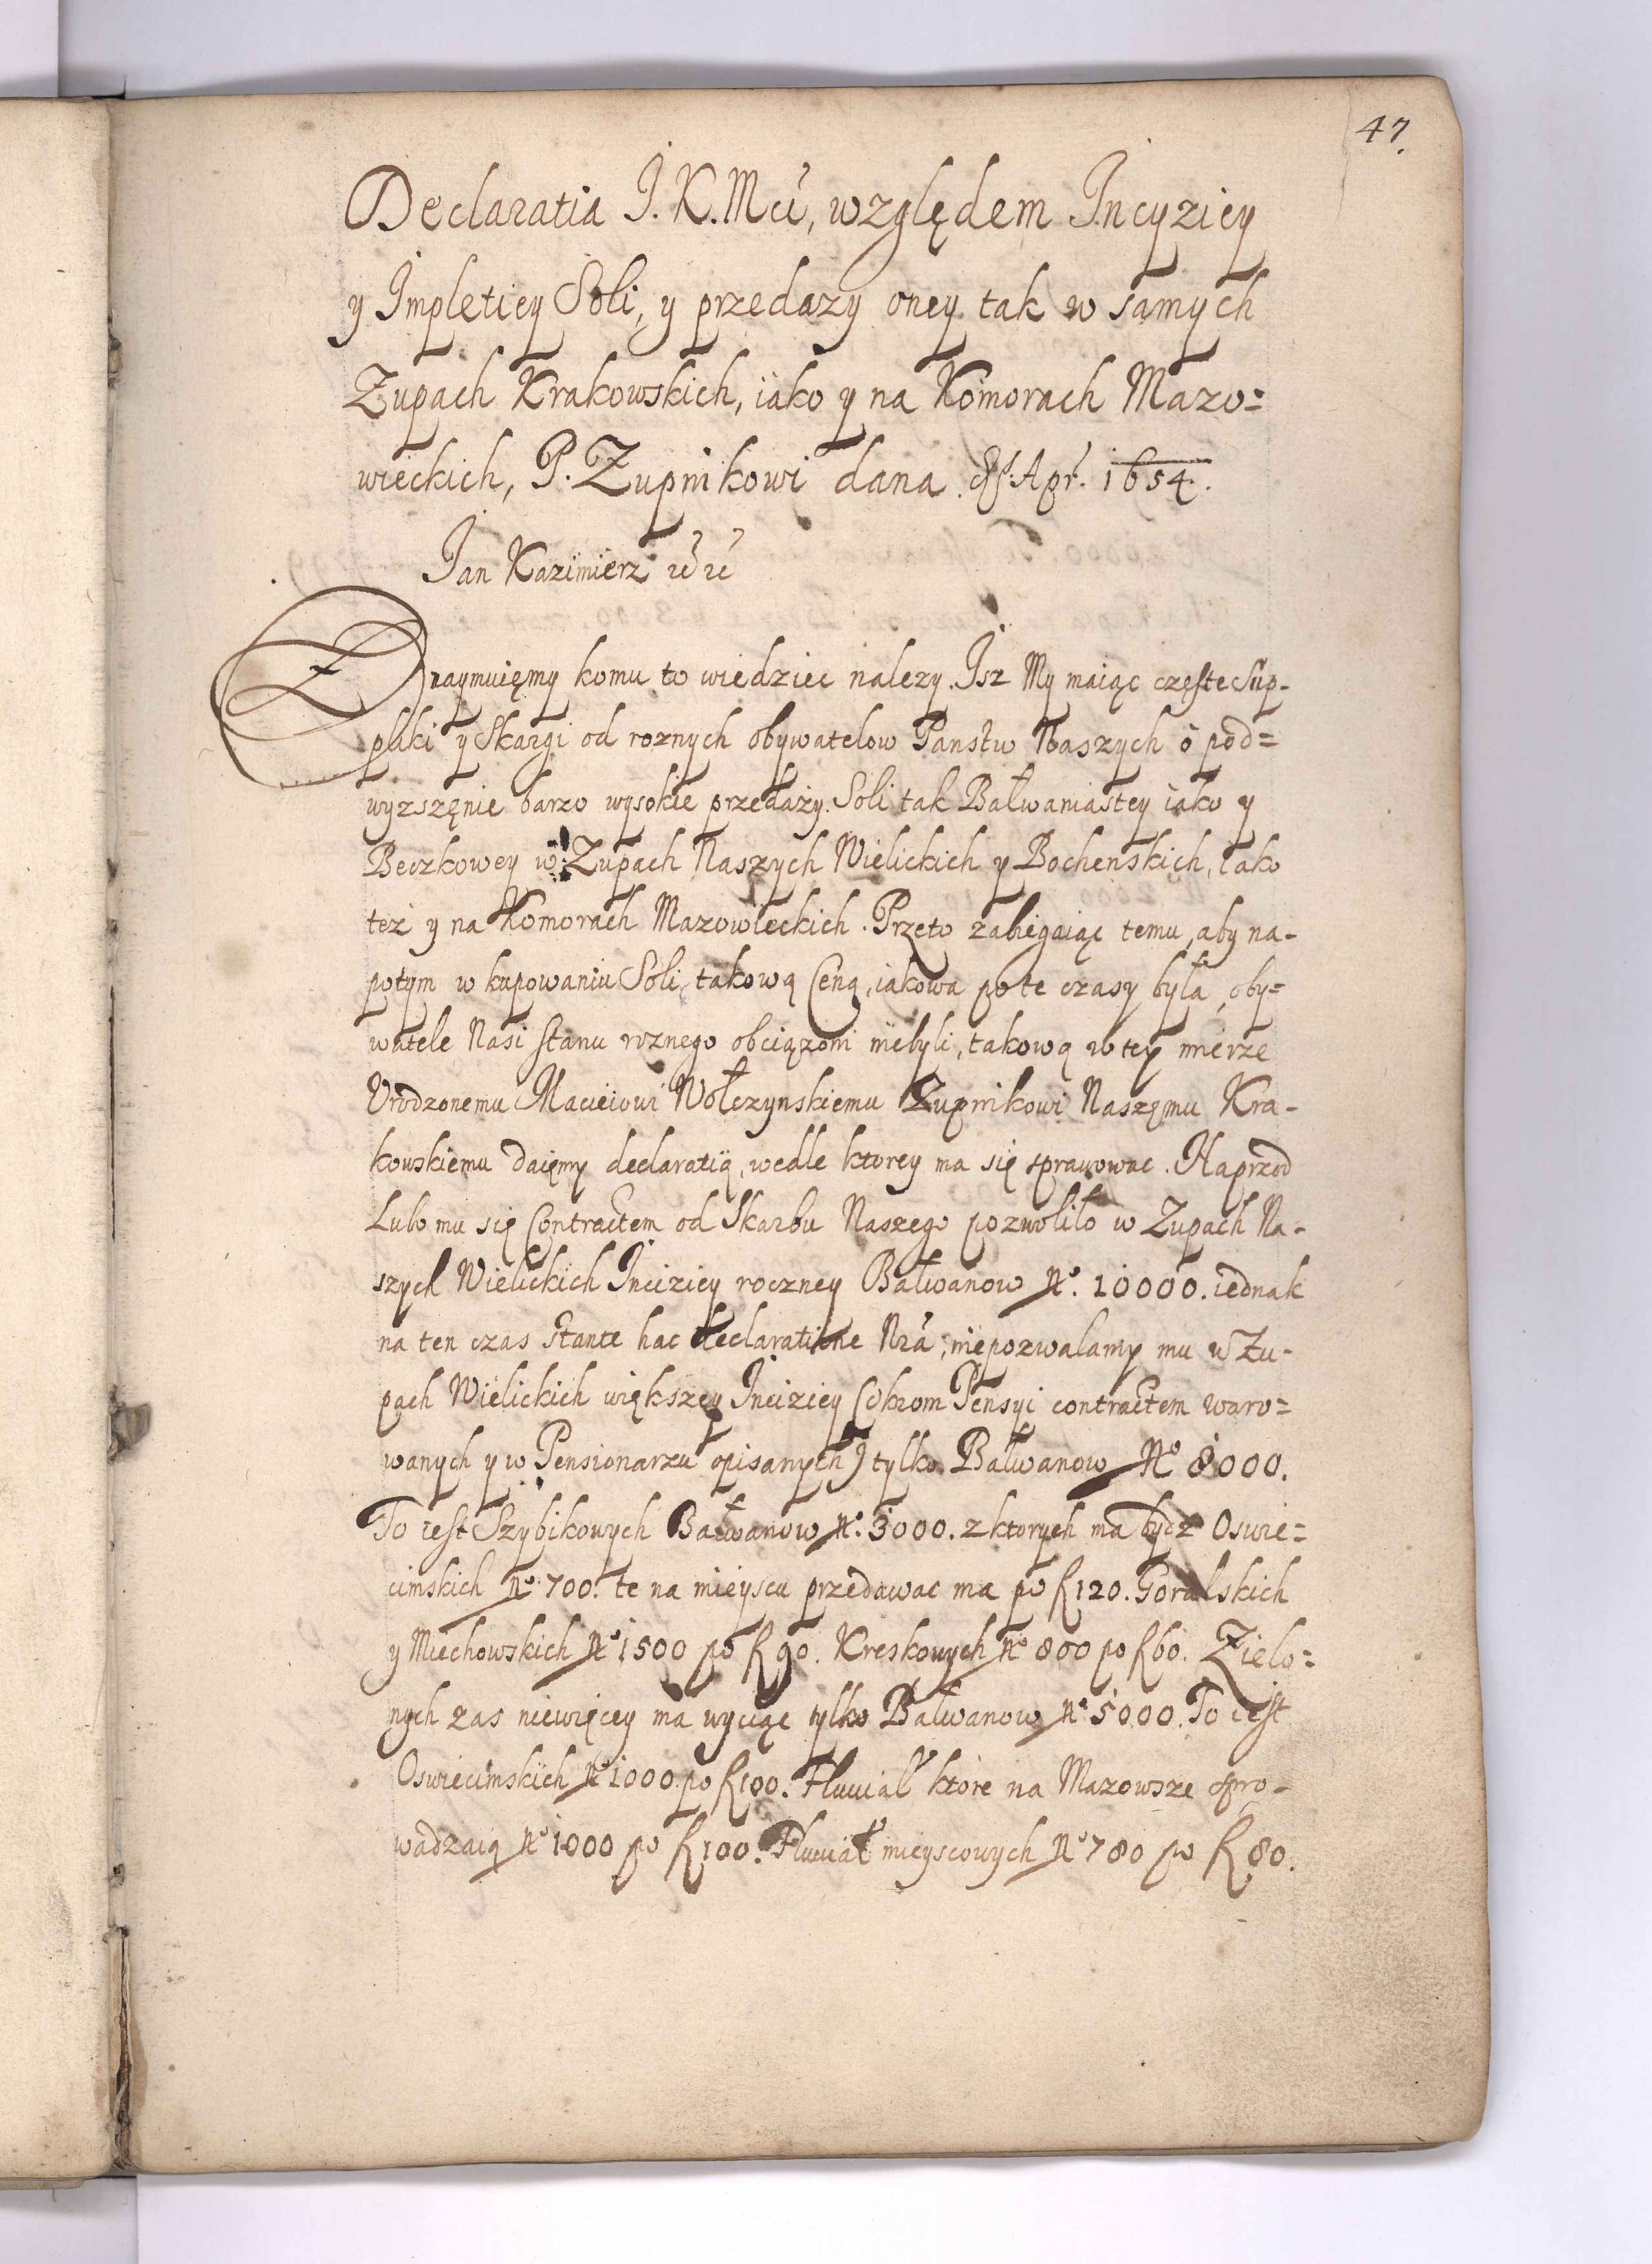 47.
Declaratia J. K. Mci, względem Incyziey
y Impletiey Soli, y przedazy oney tak w samych
Zupach Krakowskich, iako y na Komorach Mazo=
wieckich, P. Zupnikowi dana Apr. 1654.
Jan Kazimierz
Znaymuięmy komu to wiedziec nalezy. Isz My maiąc częste Sup-
pliki y Skargi od roznych obywatelow Panstw Naszych o pod=
wyzszęnie barzo wysokie przedaży Soli tak Bałwaniastey iako y
Beczkowey w Zupach Naszych Wielickich y Bochenskich, iako
tez y na Komorach Mazowieckich. Przeto zabiegaiąc temu, aby na-
potym w kupowaniu Soli, takową Ceną, iakowa po te czasy była, oby=
watele Nasi stanu roznego obciązoni niebyli, takową w tey mierze
Urodzonemu Macieiowi Wolczynskiemu Zupnikowi Naszęmu Kra-
kowskiemu daięmy declaratią, wedle ktorey ma się sprawowac. Naprzod
Lubo mu się Contractem od Skarbu Naszego pozwoliło w Zupach Na-
szych Wielickich Inciziey roczney Bałwanow No. 10000. iednak
na ten czas stante hac declaratione Nrã, niepozwalamy mu w Zu-
pach Wielickich większey Inciziey (okrom Pensyi contractem waro=
wanych y w Pensionarzu opisanych) tylko Bałwanow No 8000.
To iest Szybikowych Bałwanow No. 3000. z ktorych ma bydz Oswie=
cimskich No 700. te na mieyscu przedawac ma po f 120. Goralskich
y Miechowskich No 1500 po f 90. Kreskowych No 800 po f 60. Zielo=
nych zas niewięcey ma wyciąc tylko Bałwanow No 5000. To iest
Oswiecimskich No 1000 po f 100. Fluviał ktore na Mazowsze spro-
wadzaią No 1000 po f 100. Fluviał mieyscowych No 780 po f 80.